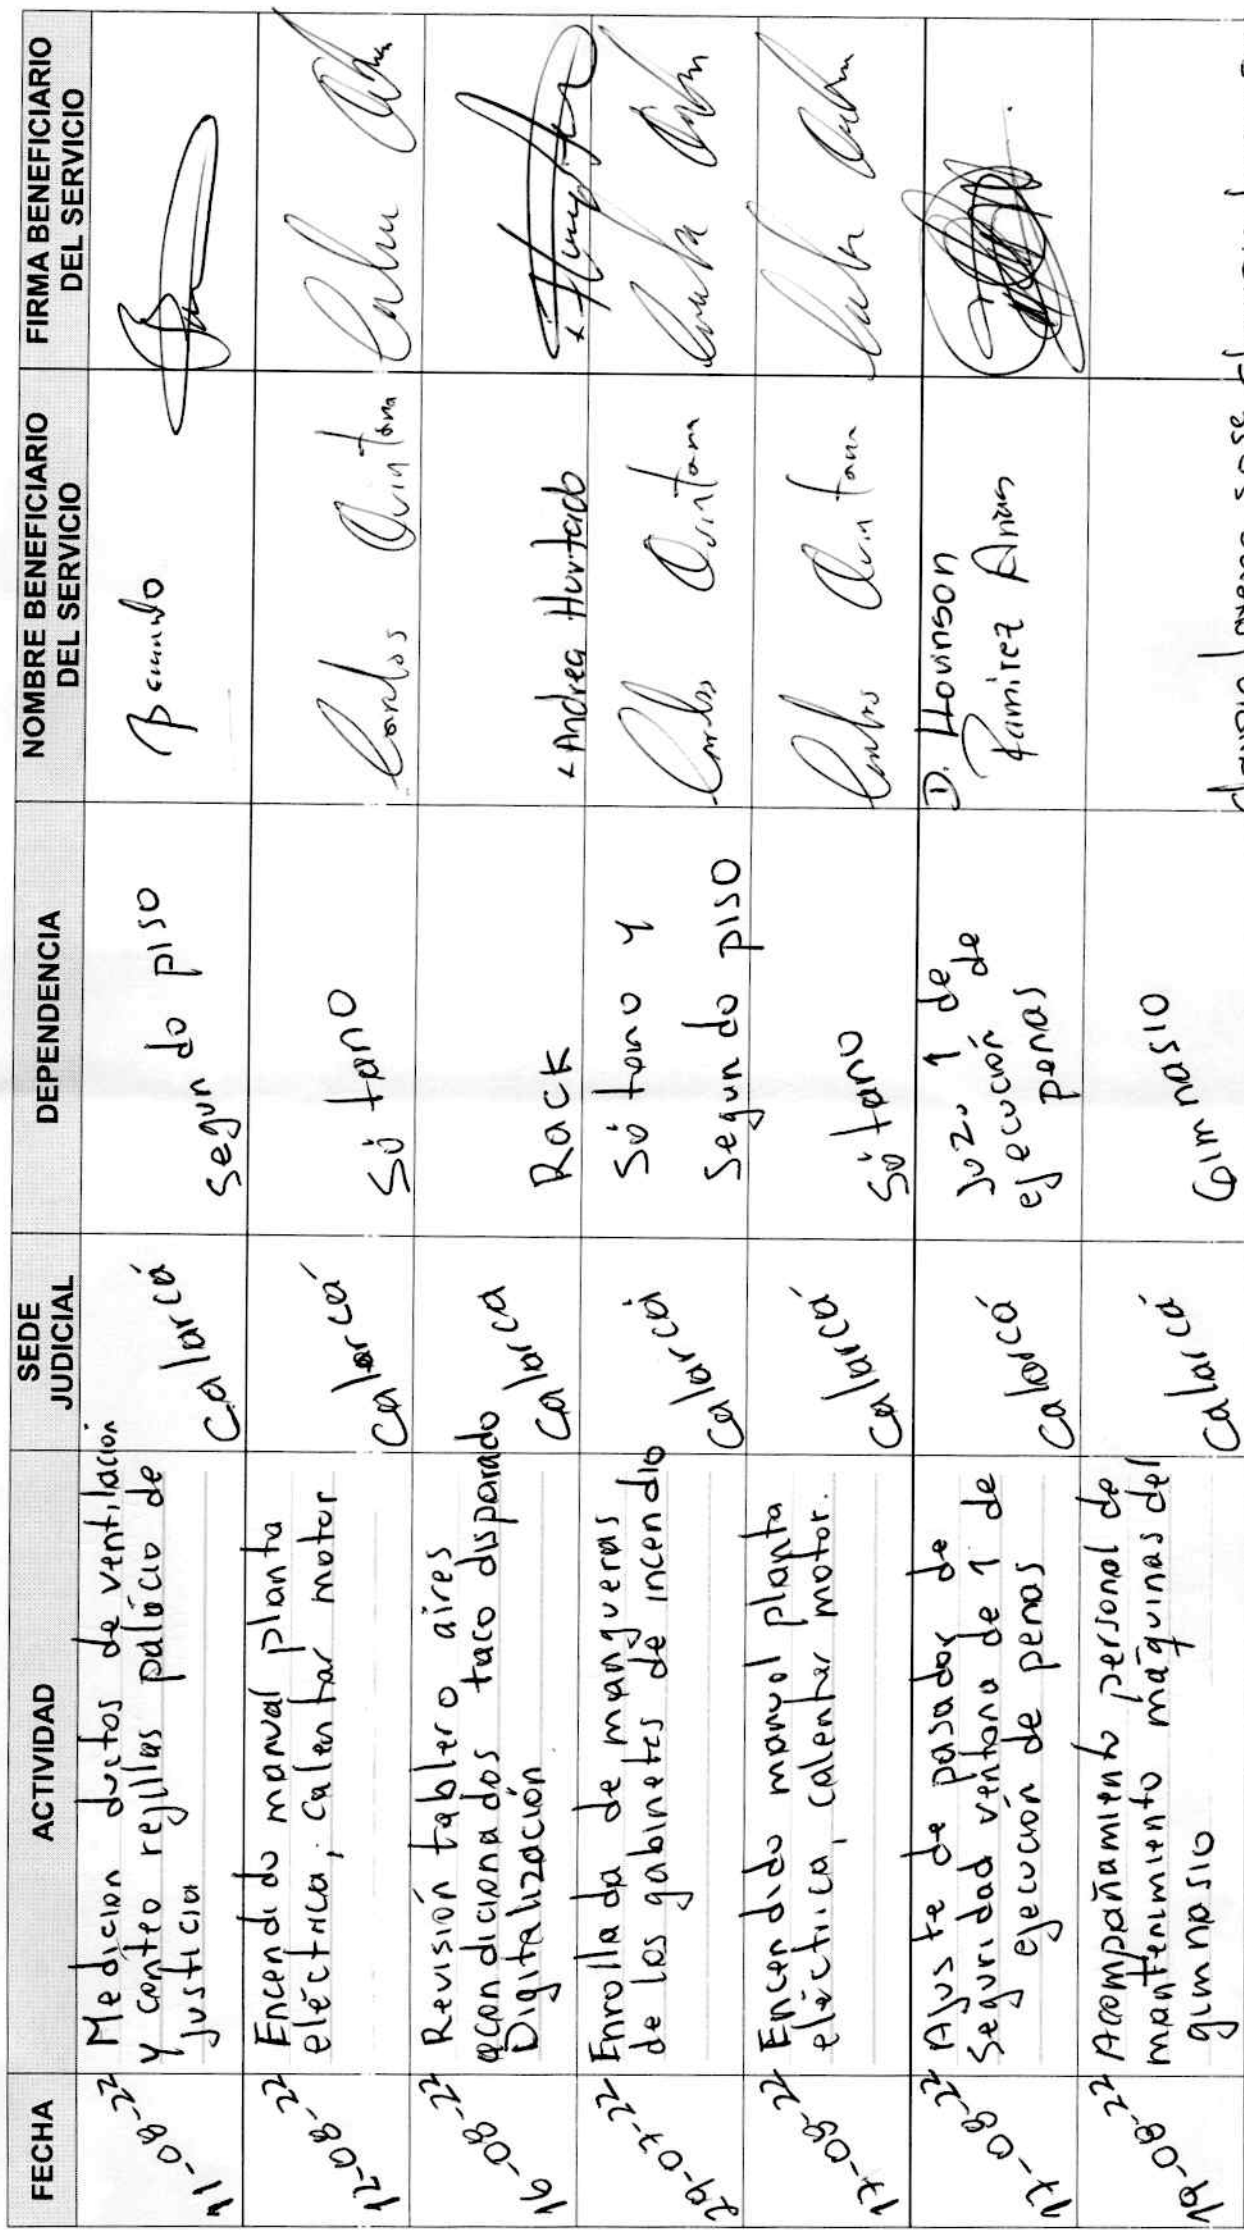 FECHA
ACTIVIDAD
SEDE
JUDICIAL
DEPENDENCIA
NOMBRE BENEFICIARIO
DEL SERVICIO
FIRMA BENEFICIARIO
DEL SERVICIO
11-08-22
Medicion ductos de ventilación
y conteo rejillas palácio de
justicia
Calarcá
Segundo piso
12-08-22
Encendido manual planta
eléctrica, calentar motor
Calarcá
Sótano
Carlos Quintana
16-08-22
Revisión tablero aires
acondicionados taco disparado
Digitalización
Calarca
Rack
Andrea Hurtado
29-07-22
Enrollada de mangueras
de los gabinetes de incendio
Calarcá
Sótano y
Segundo piso
Carlos Quintana
17-08-22
Encendido manual planta
eléctrica, calentar motor.
Calarcá
Sótano
Carlos Quintana
17-08-22
Ajuste de pasador de
Seguridad ventana de 1 de
ejecución de penas
Calarcá
Juz. 1 de
ejecución de
penas
D. Hovinson
Ramirez Arias
19-08-22
Acompañamiento personal de
mantenimiento máquinas del
gimnasio
Calarcá
Gimnasio